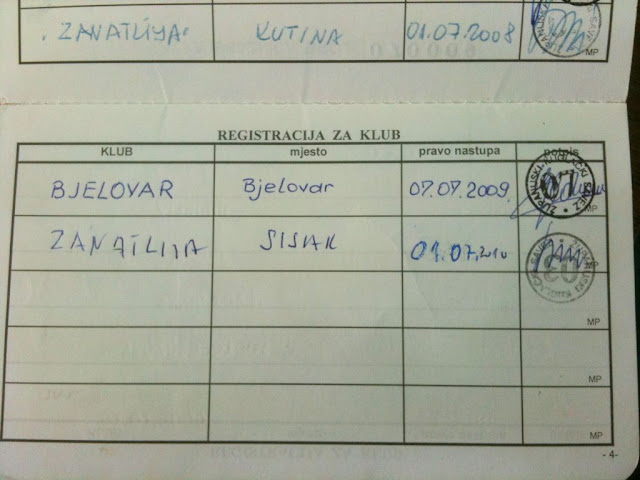 "ZANATLIJA" KUTINA 01.07.2008
MP
REGISTRACIJA ZA KLUB
KLUB mjesto pravo nastupa potpis
BJELOVAR Bjelovar 07.07.2009.
ZANATLIJA SISAK 01.07.2010
MP
MP
MP
MP
- 4-